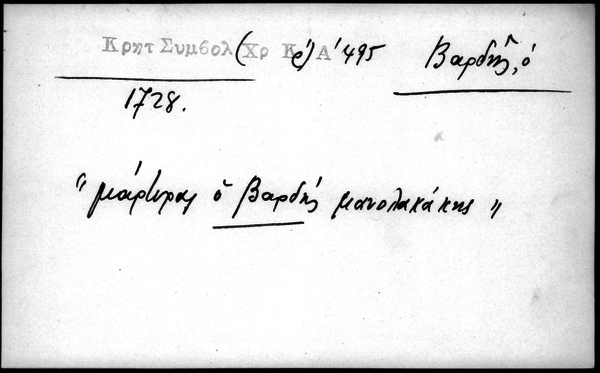 Κρητ Συμβολ (Χρ Κρ) Α' 495
Βαρδῆς, ὁ
1728.
"μάρτυρας ὁ Βαρδής μανολακάκης"